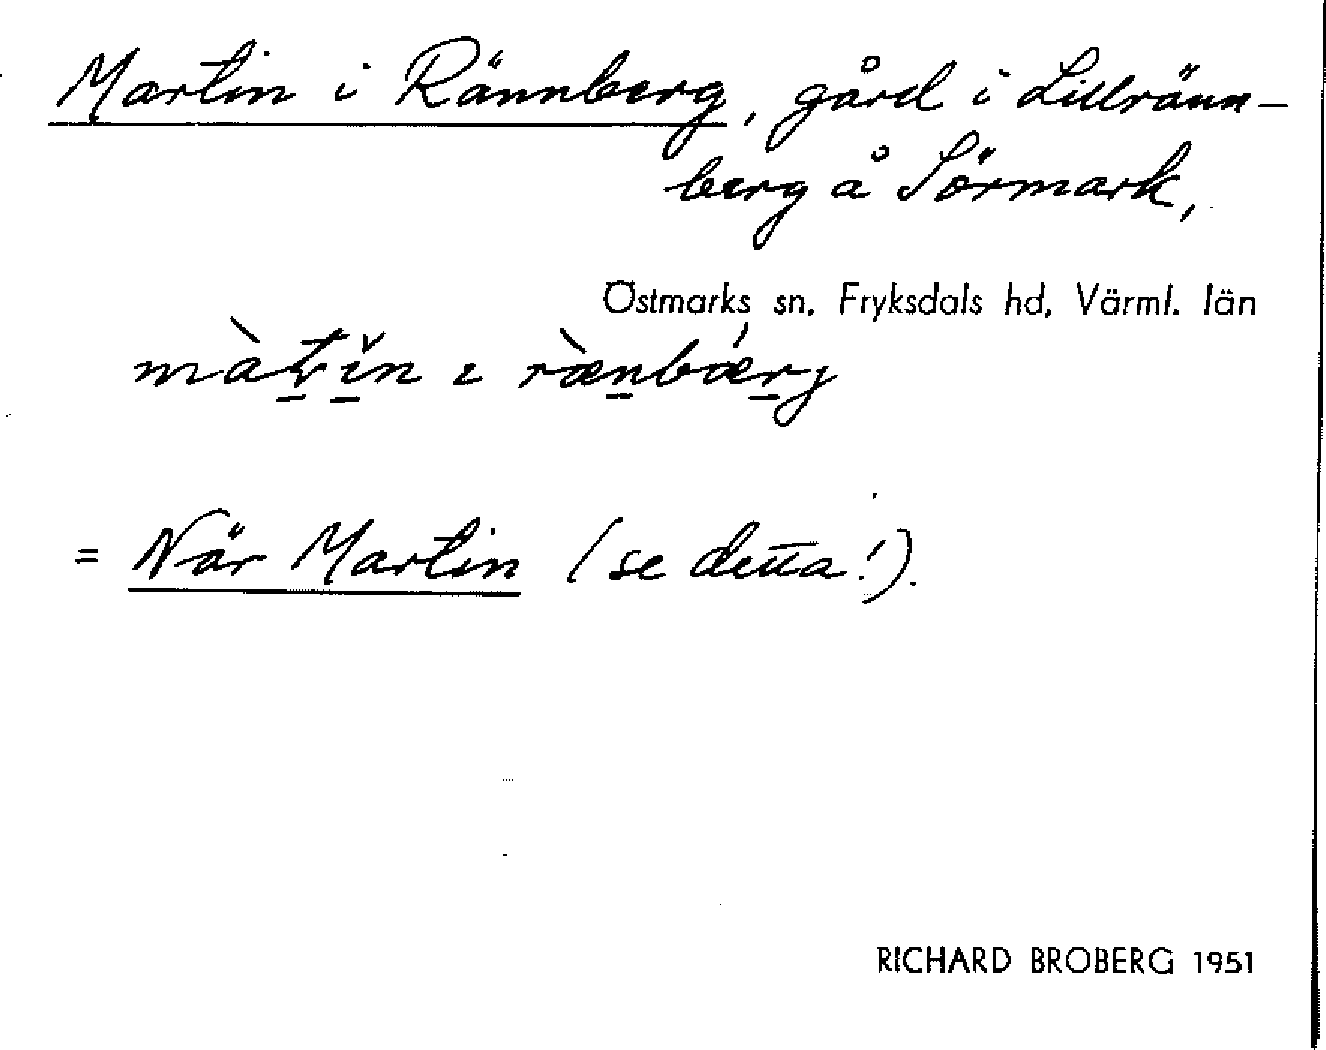 Martin i Rännberg, gård i Lillränn-
berg å Sörmark,
Östmarks sn. Fryksdals hd, Värml. län
= När Martin (se detta!).
RICHARD BROBERG 1951